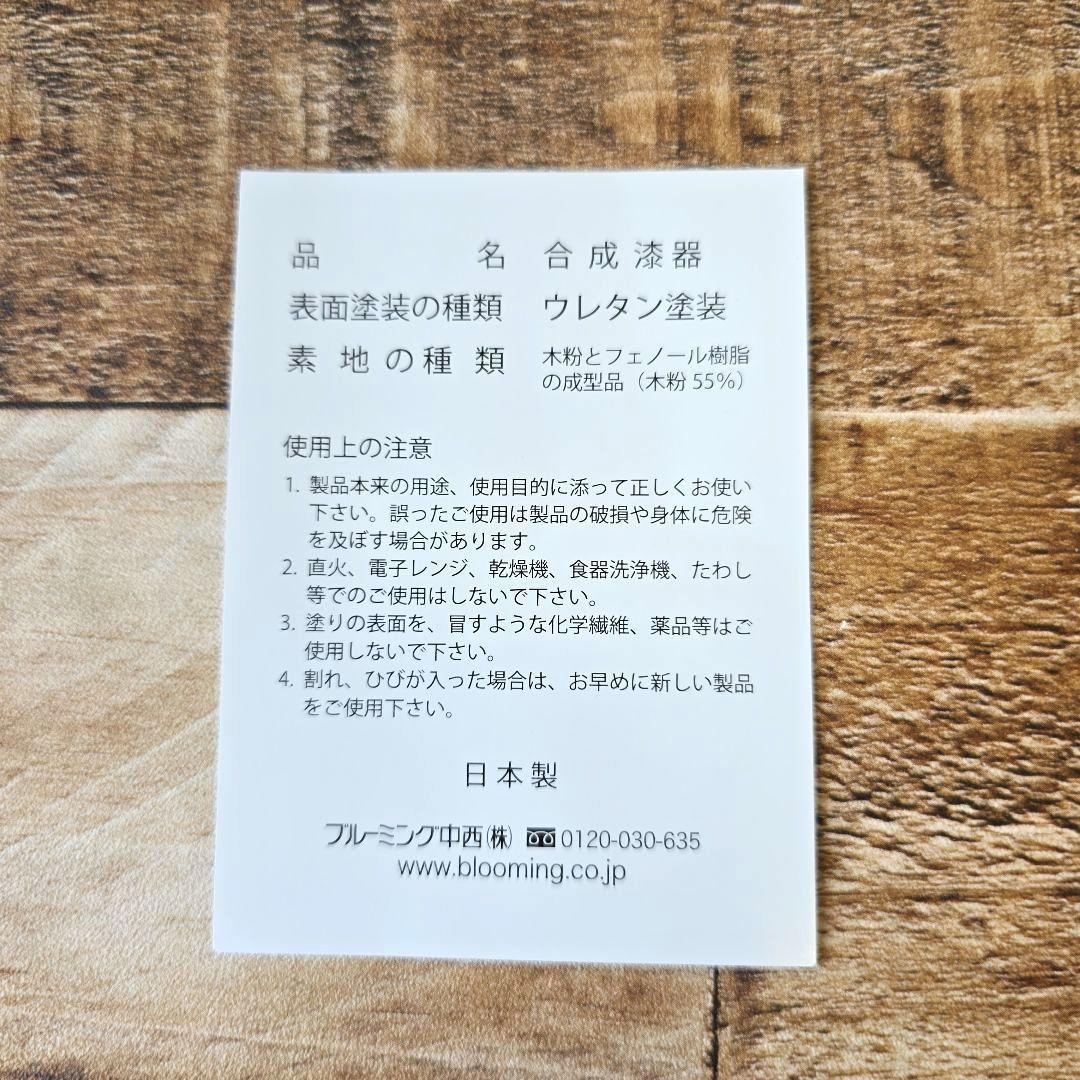 品名 合成漆器
表面塗装の種類 ウレタン塗装
素地の種類 木粉とフェノール樹脂
の成型品（木粉 55%）
使用上の注意
1. 製品本来の用途、使用目的に添って正しくお使い
下さい。誤ったご使用は製品の破損や身体に危険
を及ぼす場合があります。
2. 直火、電子レンジ、乾燥機、食器洗浄機、たわし
等でのご使用はしないで下さい。
3. 塗りの表面を、冒すような化学繊維、薬品等はご
使用しないで下さい。
4. 割れ、ひびが入った場合は、お早めに新しい製品
をご使用下さい。
日本製
ブルーミング中西㈱ 0120-030-635
www.blooming.co.jp